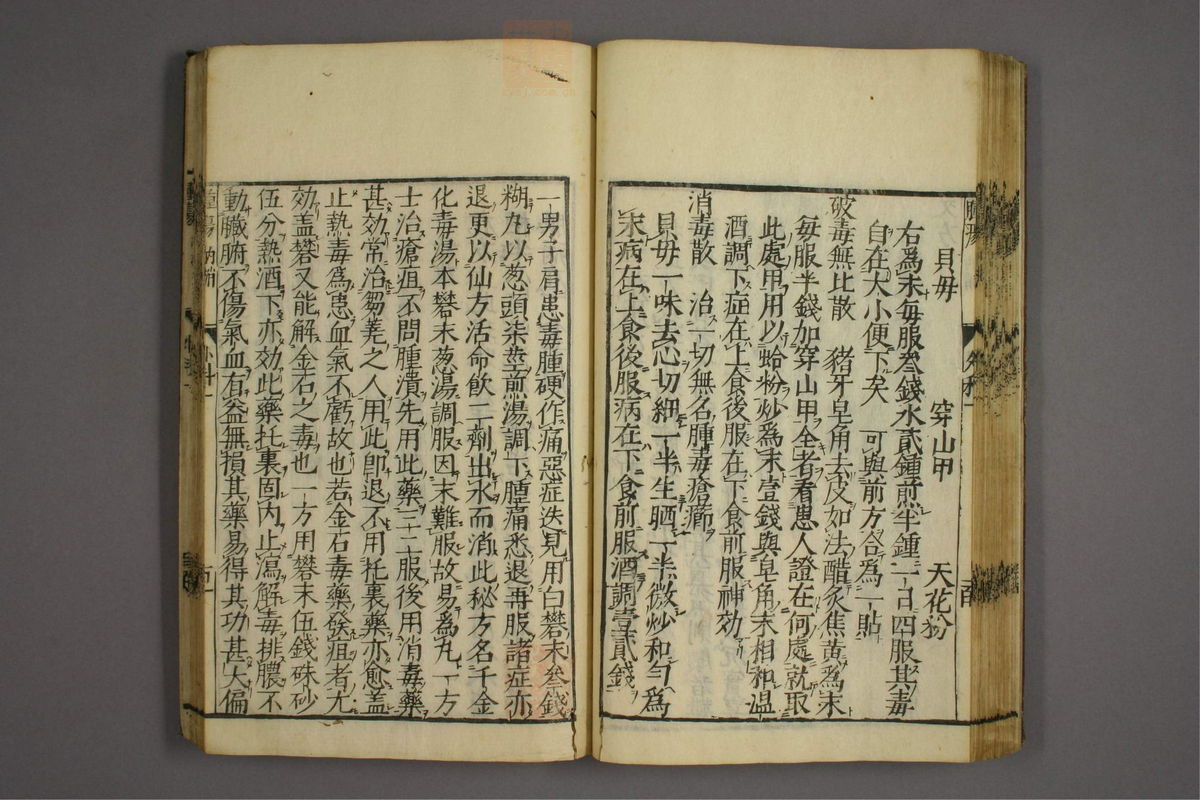 貝毋　穿山甲　天花粉
右為末每服叁錢水貳鍾煎半鍾一日四服其毒
自在大小便下矣　可與前方合為一貼
破毒無比散　豬牙皂角去皮如法醋炙焦黃為末
每服半錢加穿山甲全者看患人證在何處就取
此處甲用以蛤粉炒為末壹錢與皂角末相和温
酒調下症在上食後服在下食前服神効
消毒散　治一切無名腫毒瘡癤
貝毋一味去心切細一半生晒一半微炒和勻為
末病在上食後服病在下食前服酒調壹貳錢
一男子肩患毒腫硬作痛惡症迭見用白礬末叁錢
糊丸以葱頭柒莖煎湯調下腫痛悉退再服諸症亦
退更以仙方活命飲二劑出水而消此秘方名千金
化毒湯本礬末葱湯調服因末難服故易為丸一方
士治瘡疽不問腫潰先用此藥二三服後用消毒藥
甚効常治芻蕘之人用此卽退不用托裏藥亦愈蓋
止熱毒為患血氣不虧故也若金石毒藥發疽者尤
効盖礬又能解金石之毒也一方用礬末伍錢硃砂
伍分熱酒下亦効此藥托裏固内止瀉解毒排膿不
動臟腑不傷氣血有益無損其藥易得其功甚大偏